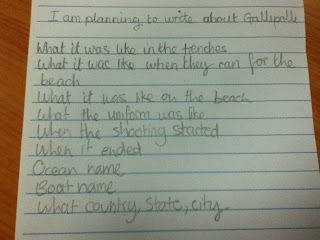 I am planning to write about Gallipolli
What it was like in the trenches
What it was like when they ran for the
beach
What it was like on the beach
What the uniform was like
When the shooting started
When it ended
Ocean name
Boat name
What country, State, city.